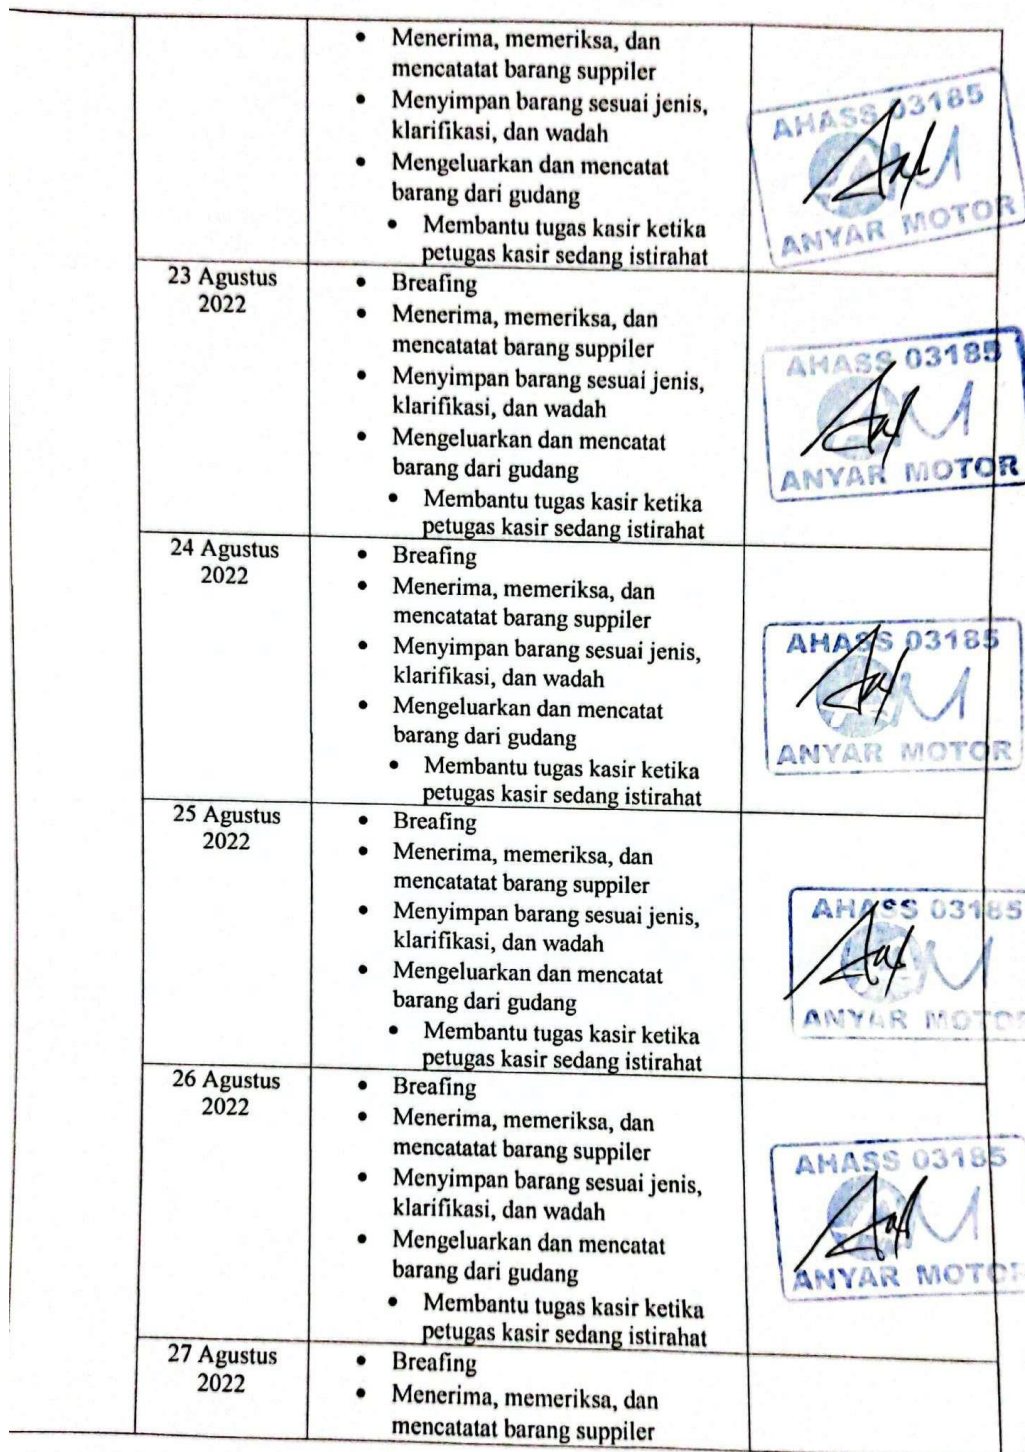 • Menerima, memeriksa, dan
mencatatat barang suppiler
• Menyimpan barang sesuai jenis,
klarifikasi, dan wadah
• Mengeluarkan dan mencatat
barang dari gudang
• Membantu tugas kasir ketika
petugas kasir sedang istirahat
AHASS 03185
ANYAR MOTOR
23 Agustus
2022
• Breafing
• Menerima, memeriksa, dan
mencatatat barang suppiler
• Menyimpan barang sesuai jenis,
klarifikasi, dan wadah
• Mengeluarkan dan mencatat
barang dari gudang
• Membantu tugas kasir ketika
petugas kasir sedang istirahat
AHASS 03185
ANYAR MOTOR
24 Agustus
2022
• Breafing
• Menerima, memeriksa, dan
mencatatat barang suppiler
• Menyimpan barang sesuai jenis,
klarifikasi, dan wadah
• Mengeluarkan dan mencatat
barang dari gudang
• Membantu tugas kasir ketika
petugas kasir sedang istirahat
AHASS 03185
ANYAR MOTOR
25 Agustus
2022
• Breafing
• Menerima, memeriksa, dan
mencatatat barang suppiler
• Menyimpan barang sesuai jenis,
klarifikasi, dan wadah
• Mengeluarkan dan mencatat
barang dari gudang
• Membantu tugas kasir ketika
petugas kasir sedang istirahat
AHASS 03185
ANYAR MOTOR
26 Agustus
2022
• Breafing
• Menerima, memeriksa, dan
mencatatat barang suppiler
• Menyimpan barang sesuai jenis,
klarifikasi, dan wadah
• Mengeluarkan dan mencatat
barang dari gudang
• Membantu tugas kasir ketika
petugas kasir sedang istirahat
AHASS 03185
ANYAR MOTOR
27 Agustus
2022
• Breafing
• Menerima, memeriksa, dan
mencatatat barang suppiler